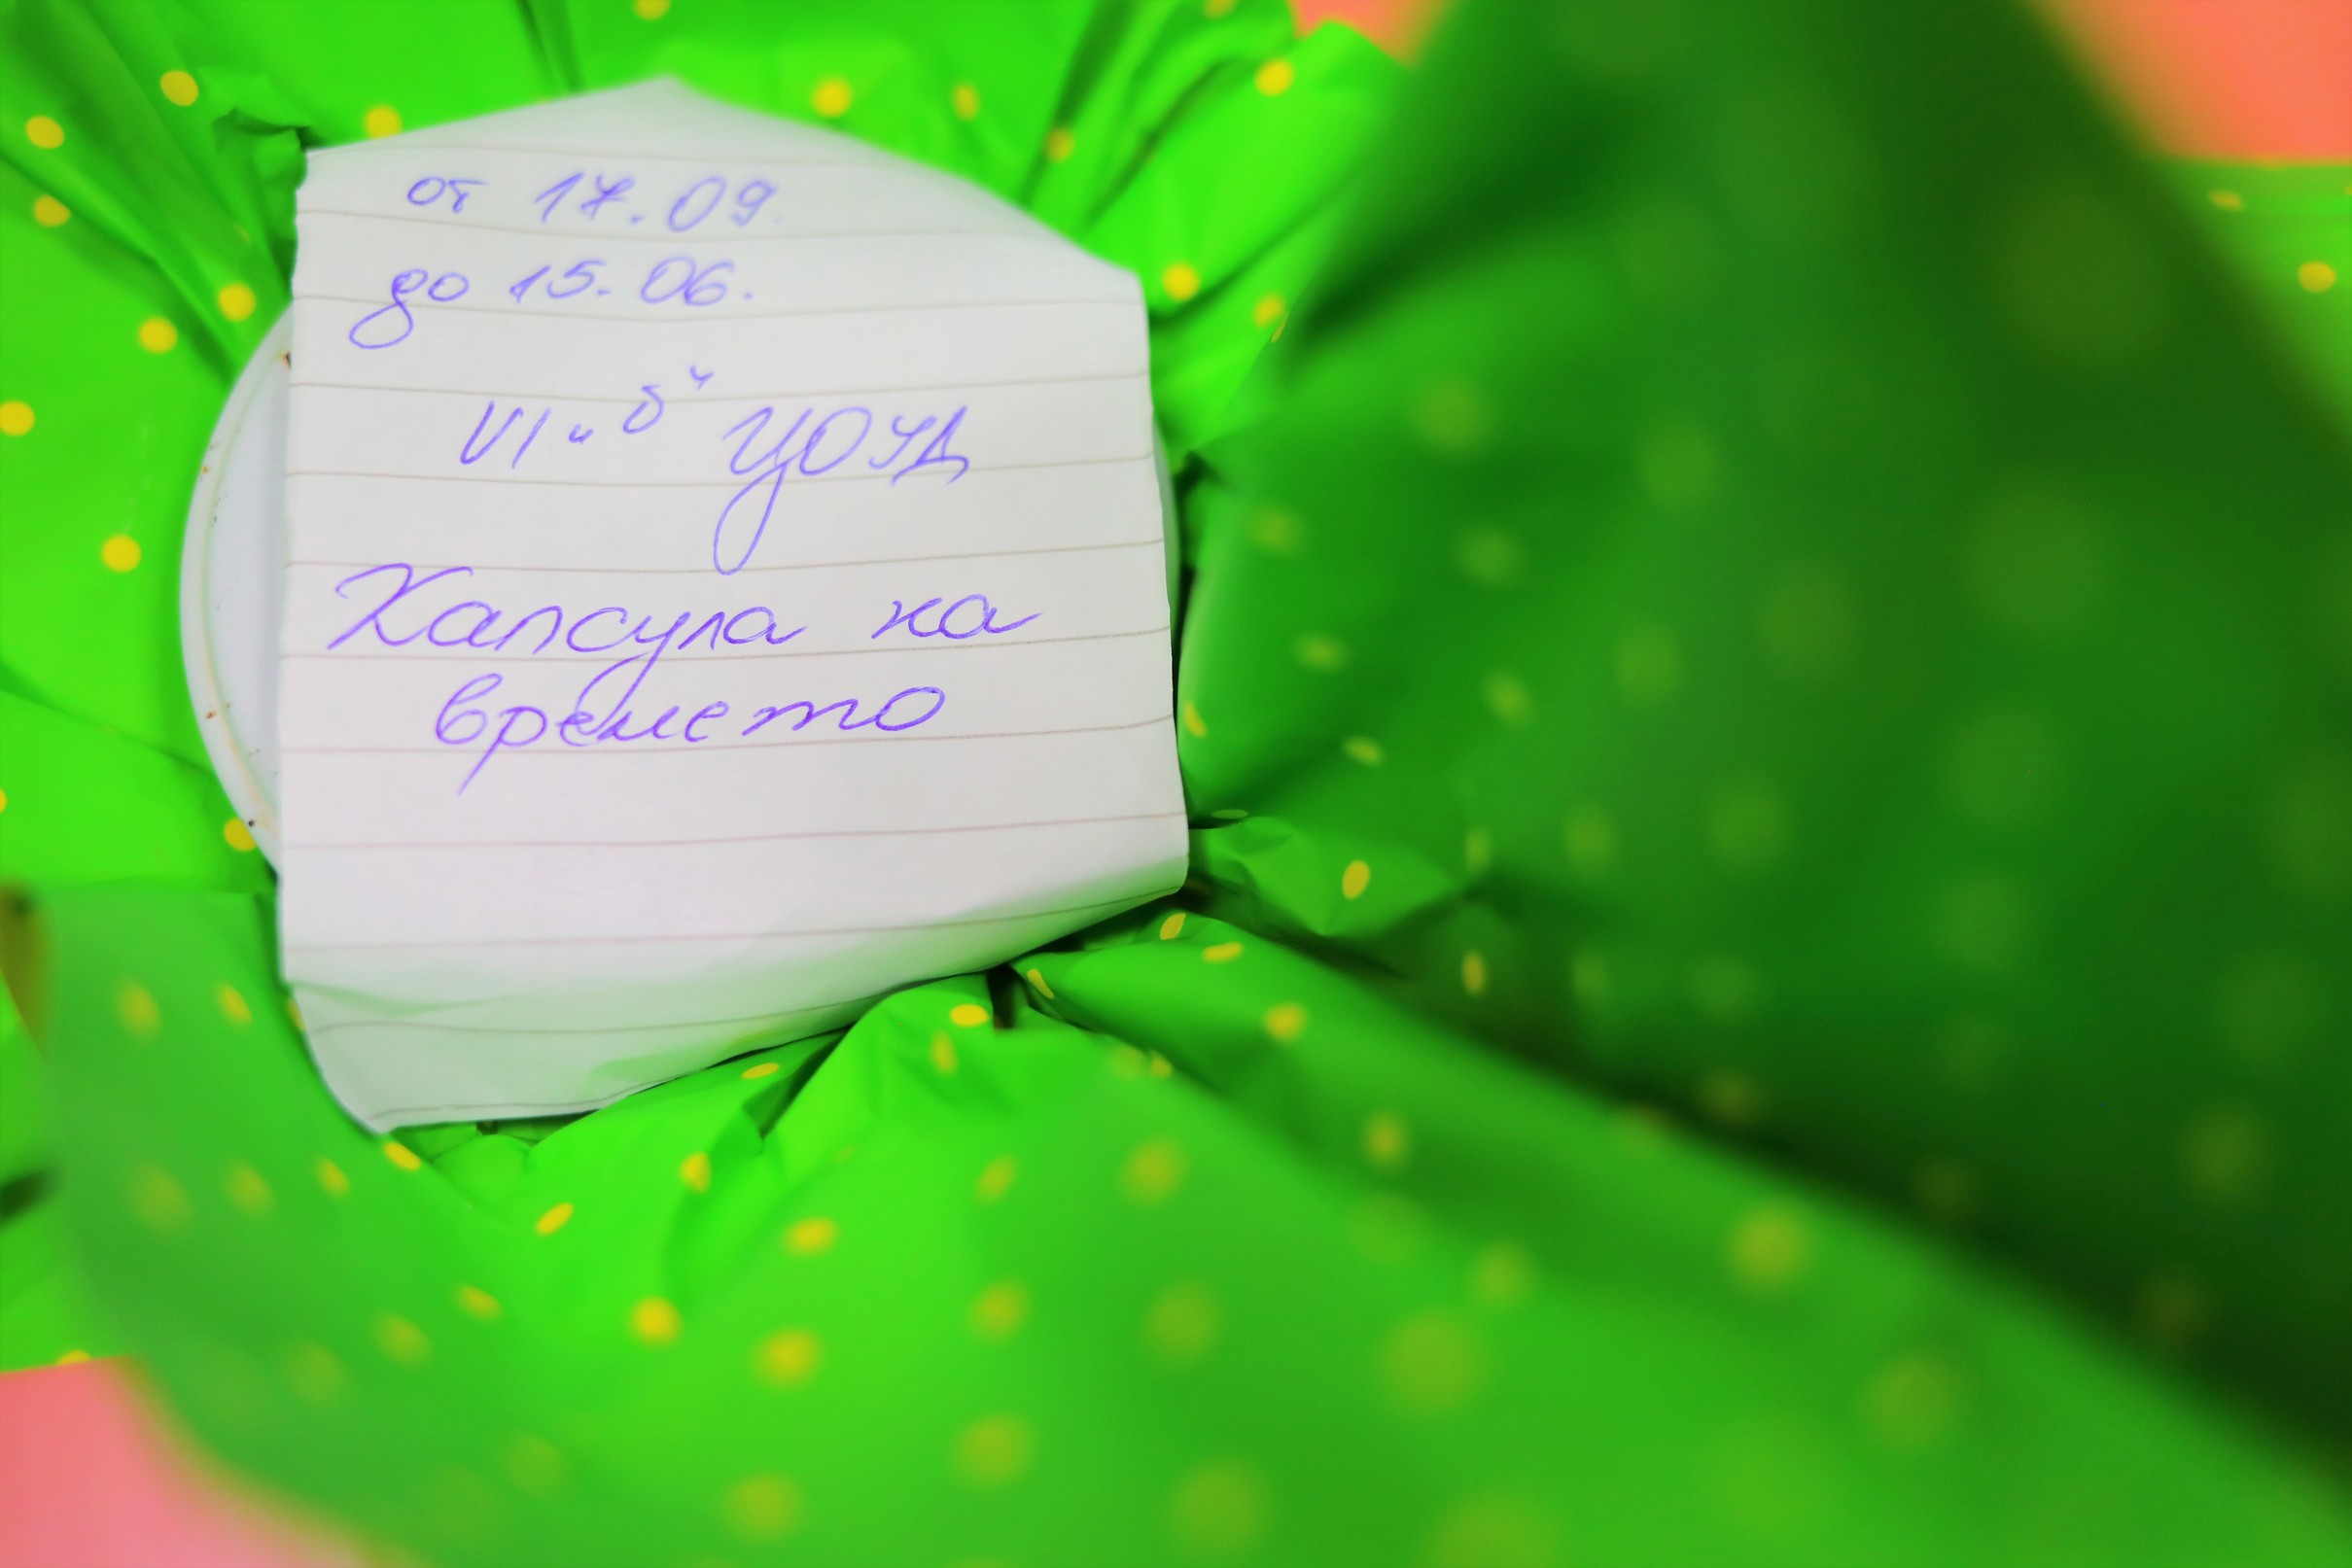 от 17.09.
до 15.06.
VI „б“ ЦОУД
Капсула на
времето